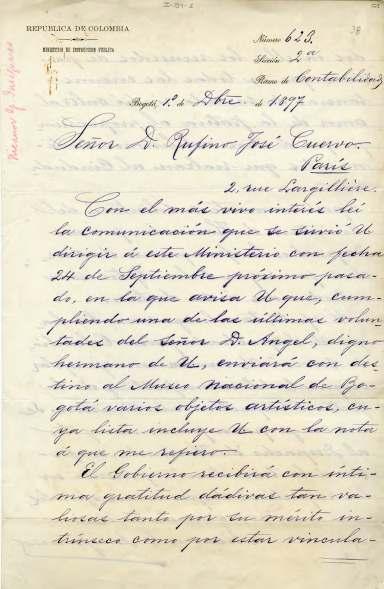 I-84-1
38
REPUBLICA DE COLOMBIA
MINISTERIO DE INSTRUCCION PUBLICA
Número 623.
Sección 2ª
Ramo de Contabilidad
Bogotá, 1º de Dbre. de 1897
Señor D. Rufino José Cuervo.
París
2. rue Largillière.
Con el más vivo interés leí
la comunicación que se sirvió U
dirigir á este Ministerio con fecha
24 de Septiembre próximo pasa-
do, en la que avisa U que, cum-
pliendo una de las últimas volun-
tades del señor D. Angel, digno
hermano de U, enviará con des-
tino al Museo nacional de Bo-
gotá varios objetos artísticos, cu-
ya lista incluye U con la nota
á que me refiero.
El Gobierno recibirá con ínti-
ma gratitud dádivas tan va-
liosas tanto por su mérito in-
trínseco como por estar vincula-